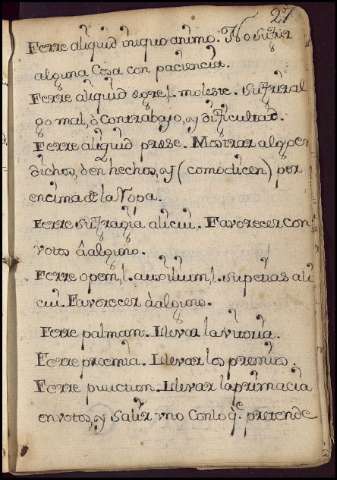 27
Ferre aliquid iniquo animo. No sufrir
alguna cosa con paciencia.
Ferre aliquid egre l. moleste. Sufrir al
go mal, ò con trabajo, y dificultad.
Ferre aliquid præ se. Mostrar algo en
dichos, ò en hechos, y (como dicen) por
encima de la ropa.
Ferre suffragia alicui. Favorecer con
votos à alguno.
Ferre opem, l. auxilium, l. supetias ali
cui. Favorecer à alguno.
Ferre palmam. Llevar la victoria.
Ferre præmia. Llevar los premios.
Ferre punctum. Llevar la primacia
en votos, y salir uno con lo q.e pretende